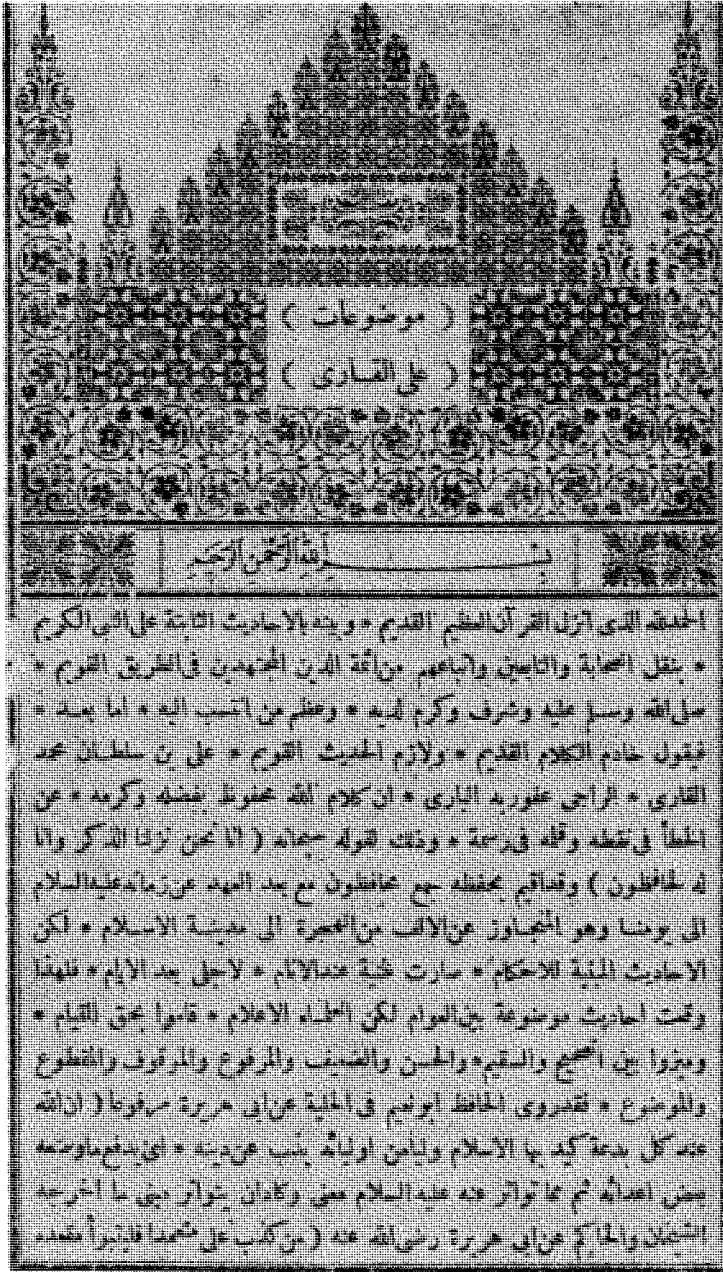 ( موضوعات )
( على القارى )
بسم الله الرحمن الرحيم
الحمد لله الذى انزل القرآن العظيم القديم * وبينه بالاحاديث الثابتة على النبى الكريم
* بنقل الصحابة والتابعين واتباعهم من ائمة الدين المجتهدين فى الطريق القويم *
صلى الله وسلم عليه وشرف وكرم لديه * وعظم من انتسب اليه * اما بعد *
فيقول خادم الكلام القديم * ولازم الحديث القويم * على بن سلطان محمد
القارى * الراجى عفو ربه البارى * ان كلام الله محفوظ بفضله وكرمه * عن
الخطأ فى نقطه وقلم فى رسمه * وذلك لقوله سبحانه ( انا نحن نزلنا الذكر وانا
له لحافظون ) وقد اقيم بحفظه جمع محافظون مع بعد العهد عن زمانه عليه السلام
الى يومنا وهو المتجاوز عن الالف من الهجرة الى مدينة الاسلام * لكن
الاحاديث المبنية للاحكام * صارت ظنية عند الانام * لاجل بعد الايام * فلهذا
وقعت احاديث موضوعة بين العوام لكن العلماء الاعلام * قاموا بحق القيام *
وميزوا بين الصحيح والسقيم * والحسن والضعيف والمرفوع والموقوف والمقطوع
والموضوع * فقد روى الحافظ ابو نعيم فى الحلية عن ابى هريرة مرفوعا ( ان لله
عند كل بدعة كيد بها الاسلام وليا من اوليائه يذب عن دينه * اى يدفع ما وضعه
بعض اعدائه ثم مما تواتر عنه عليه السلام معنى وكاد ان يتواتر مبنى ما اخرجه
الشيخان والحاكم عن ابى هريرة رضى الله عنه ( من كذب على متعمدا فليتبوأ مقعده